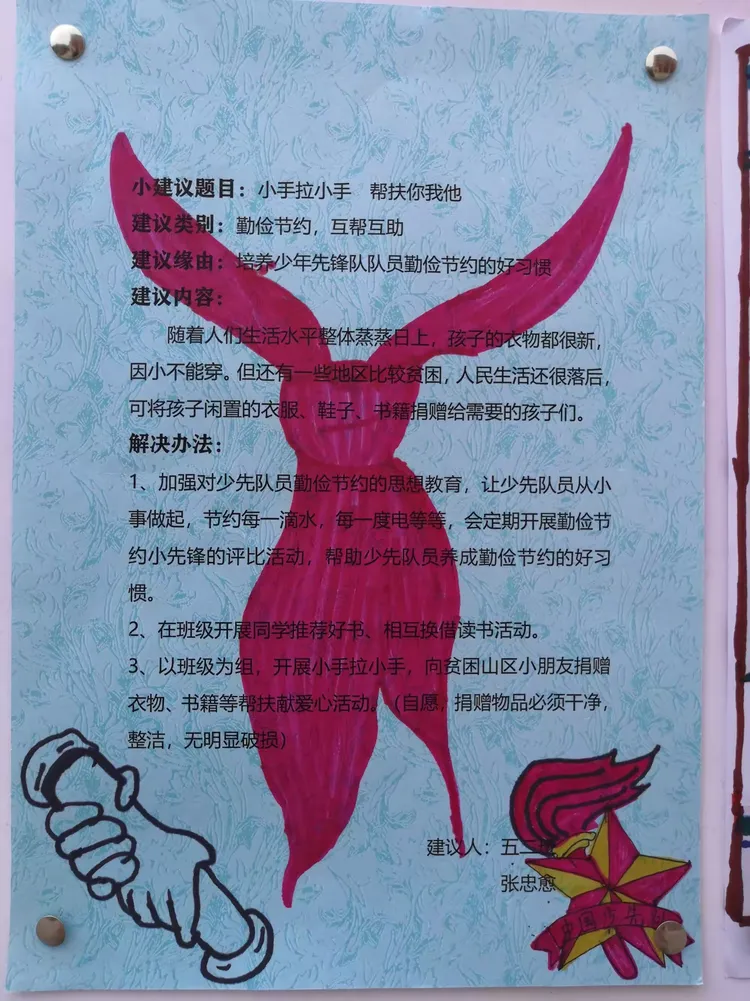 小建议题目：小手拉小手　帮扶你我他
建议类别：勤俭节约，互帮互助
建议缘由：培养少年先锋队队员勤俭节约的好习惯
建议内容：
随着人们生活水平整体蒸蒸日上，孩子的衣物都很新，
因小不能穿。但还有一些地区比较贫困，人民生活还很落后，
可将孩子闲置的衣服、鞋子、书籍捐赠给需要的孩子们。
解决办法：
1、加强对少先队员勤俭节约的思想教育，让少先队员从小
事做起，节约每一滴水，每一度电等等，会定期开展勤俭节
约小先锋的评比活动，帮助少先队员养成勤俭节约的好习
惯。
2、在班级开展同学推荐好书、相互换借读书活动。
3、以班级为组，开展小手拉小手，向贫困山区小朋友捐赠
衣物、书籍等帮扶献爱心活动。（自愿，捐赠物品必须干净，
整洁，无明显破损）
建议人：五二
张忠愈
中国少先